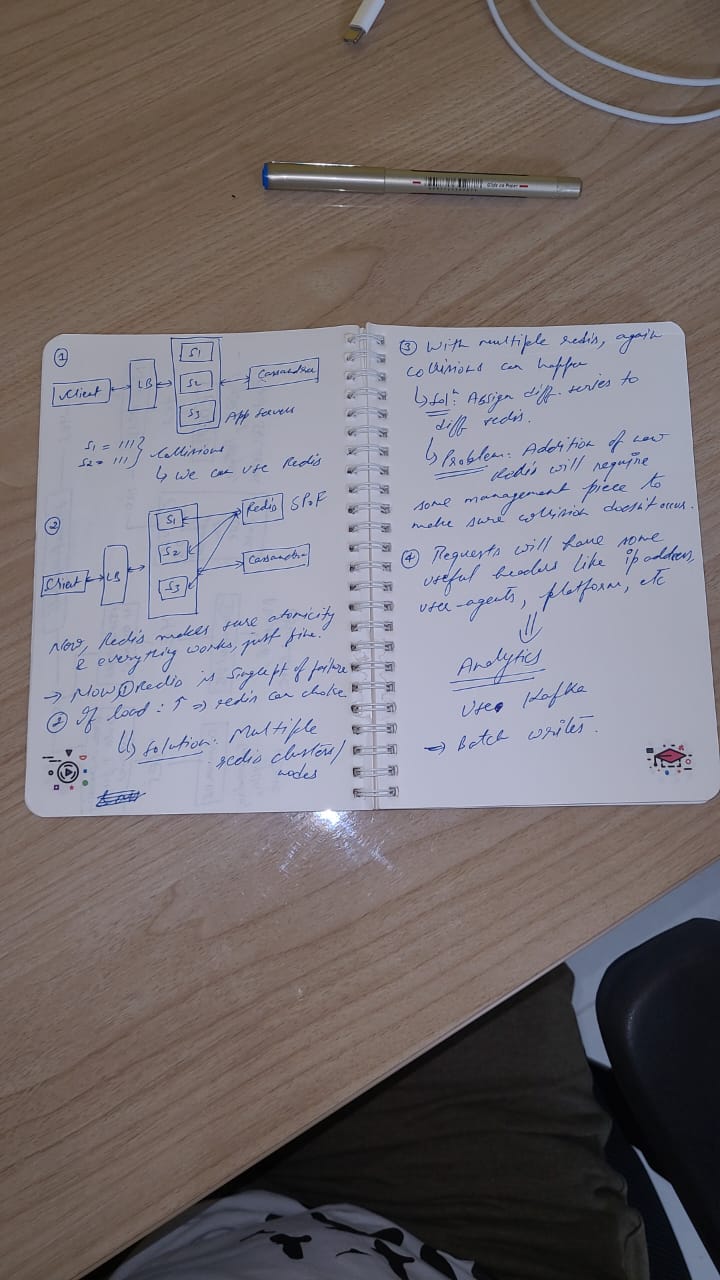 ①
Client
LB
S1
S2
S3
Cassandra
App Servers
S1 = 111 } Collisions
S2 = 111
↳ we can use Redis
②
Client
LB
S1
S2
S3
Redis SPoF
Cassandra
Now, Redis makes sure atomicity
& everything works, just fine.
→ Now, ① Redis is Single pt of failure
② If load: ↑ ⇒ redis can choke
↳ Solution: Multiple
redis clusters/
nodes
③ With multiple redis, again
collisions can happen
↳ Solⁿ: Assign diff. series to
diff redis.
↳ Problem: Addition of new
Redis will require
some management piece to
make sure collision doesn't occur.
④ Requests will have some
useful headers like ip address,
user-agents, platform, etc
⇓
Analytics
Use Kafka
→ Batch writes.